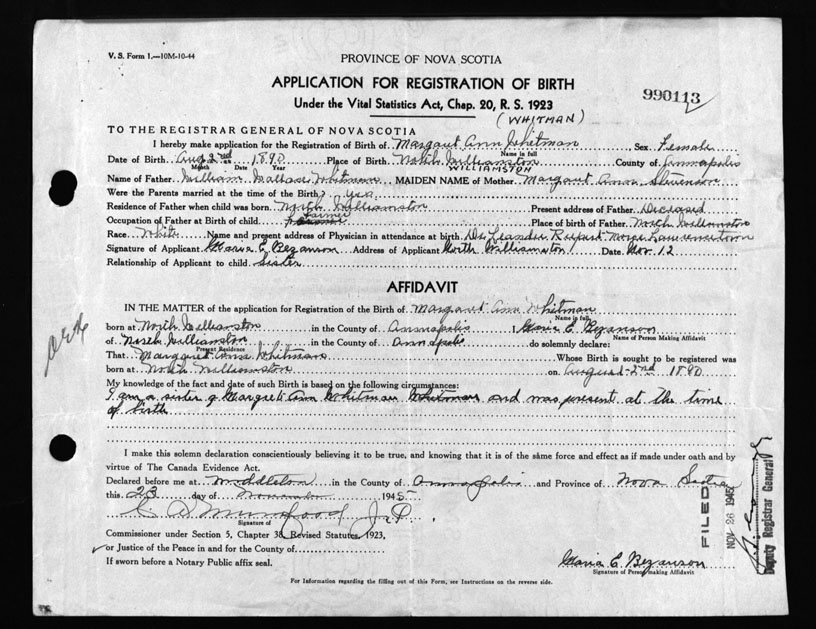 V. S. Form 1.—10M-10-44
PROVINCE OF NOVA SCOTIA
APPLICATION FOR REGISTRATION OF BIRTH
990113
Under the Vital Statistics Act, Chap. 20, R. S. 1923
(WHITMAN)
TO THE REGISTRAR GENERAL OF NOVA SCOTIA
I hereby make application for the Registration of Birth of Margaret Ann Whitman Sex Female
Name in full
Date of Birth Aug 2nd 1890 Place of Birth North Williamston County of Annapolis
Month Date Year WILLIAMSTON
Name of Father William Wallace Whitman MAIDEN NAME of Mother Margaret Ann Stevenson
Were the Parents married at the time of the Birth? yes
Residence of Father when child was born North Williamston Present address of Father Deceased
Occupation of Father at Birth of child Farmer Place of birth of Father North Williamston
Race White Name and present address of Physician in attendance at birth Dr Leander Morse Lawrencetown
Signature of Applicant Maria E Bezanson Address of Applicant North Williamston Date Nov. 12
Relationship of Applicant to child Sister
AFFIDAVIT
IN THE MATTER of the application for Registration of the Birth of Margaret Ann Whitman
Name in full
born at North Williamston in the County of Annapolis I, Maria E Bezanson
Name of Person Making Affidavit
of North Williamston in the County of Annapolis do solemnly declare:
Present Residence
That Margaret Ann Whitman Whose Birth is sought to be registered was
born at North Williamston on August 2nd 1890
My knowledge of the fact and date of such Birth is based on the following circumstances:
I am a sister of Margret Ann Whitman Whitman and was present at the time
of birth
I make this solemn declaration conscientiously believing it to be true, and knowing that it is of the same force and effect as if made under oath and by
virtue of The Canada Evidence Act.
Declared before me at Middleton in the County of Annapolis and Province of Nova Scotia
this 23 day of November 1945
J. P.
Signature of
Commissioner under Section 5, Chapter 38, Revised Statutes, 1923,
or Justice of the Peace in and for the County of
If sworn before a Notary Public affix seal.
Maria E Bezanson
Signature of Person making Affidavit
For Information regarding the filling out of this Form, see Instructions on the reverse side.
FILED
NOV 26 1945
Deputy Registrar General